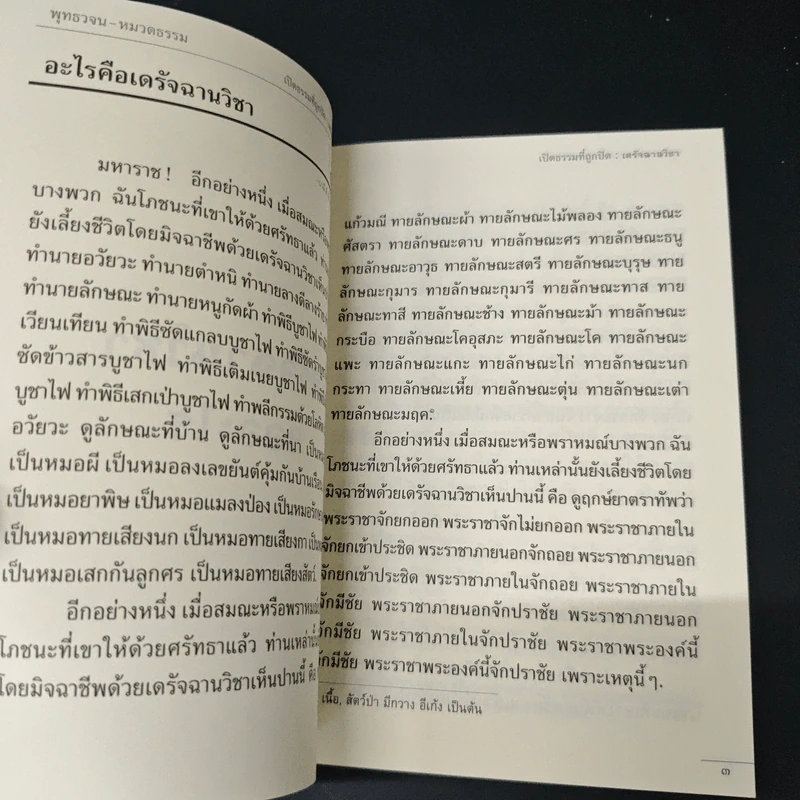 พุทธวจน – หมวดธรรม
เปิดธรรมที่ถูกปิด :
อะไรคือเดรัจฉานวิชา
มหาราช ! อีกอย่างหนึ่ง เมื่อสมณะหรือ
บางพวก ฉันโภชนะที่เขาให้ด้วยศรัทธาแล้ว
ยังเลี้ยงชีวิตโดยมิจฉาชีพด้วยเดรัจฉานวิชาเห็น
ทำนายอวัยวะ ทำนายตำหนิ ทำนายลางดีลางร้าย
ทำนายลักษณะ ทำนายหนูกัดผ้า ทำพิธีบูชาไฟ
เวียนเทียน ทำพิธีซัดแกลบบูชาไฟ ทำพิธีซัดรำ
ซัดข้าวสารบูชาไฟ ทำพิธีเติมเนยบูชาไฟ ทำพิธี
บูชาไฟ ทำพิธีเสกเป่าบูชาไฟ ทำพลีกรรมด้วย
อวัยวะ ดูลักษณะที่บ้าน ดูลักษณะที่นา
เป็นหมอผี เป็นหมอลงเลขยันต์คุ้มกันบ้านเรือน
เป็นหมอยาพิษ เป็นหมอแมลงป่อง
เป็นหมอทายเสียงนก เป็นหมอทายเสียงกา
เป็นหมอเสกกันลูกศร เป็นหมอทายเสียงสัตว์.
อีกอย่างหนึ่ง เมื่อสมณะหรือพราหมณ์
โภชนะที่เขาให้ด้วยศรัทธาแล้ว ท่านเหล่านั้น
โดยมิจฉาชีพด้วยเดรัจฉานวิชาเห็นปานนี้ คือ
เปิดธรรมที่ถูกปิด : เดรัจฉานวิชา
แก้วมณี ทายลักษณะผ้า ทายลักษณะไม้พลอง ทายลักษณะ
ศัสตรา ทายลักษณะดาบ ทายลักษณะศร ทายลักษณะธนู
ทายลักษณะอาวุธ ทายลักษณะสตรี ทายลักษณะบุรุษ ทาย
ลักษณะกุมาร ทายลักษณะกุมารี ทายลักษณะทาส ทาย
ลักษณะทาสี ทายลักษณะช้าง ทายลักษณะม้า ทายลักษณะ
กระบือ ทายลักษณะโคอุสภะ ทายลักษณะโค ทายลักษณะ
แพะ ทายลักษณะแกะ ทายลักษณะไก่ ทายลักษณะนก
กระทา ทายลักษณะเหี้ย ทายลักษณะตุ่น ทายลักษณะเต่า
ทายลักษณะมฤค.
อีกอย่างหนึ่ง เมื่อสมณะหรือพราหมณ์บางพวก ฉัน
โภชนะที่เขาให้ด้วยศรัทธาแล้ว ท่านเหล่านั้นยังเลี้ยงชีวิตโดย
มิจฉาชีพด้วยเดรัจฉานวิชาเห็นปานนี้ คือ ดูฤกษ์ยาตราทัพว่า
พระราชาจักยกออก พระราชาจักไม่ยกออก พระราชาภายใน
จักยกเข้าประชิด พระราชาภายนอกจักถอย พระราชาภายนอก
จักยกเข้าประชิด พระราชาภายในจักถอย พระราชาภายใน
จักมีชัย พระราชาภายนอกจักปราชัย พระราชาภายนอก
จักมีชัย พระราชาภายในจักปราชัย พระราชาพระองค์นี้
จักมีชัย พระราชาพระองค์นี้จักปราชัย เพราะเหตุนี้ ๆ.
เนื้อ, สัตว์ป่า มีกวาง อีเก้ง เป็นต้น
๓